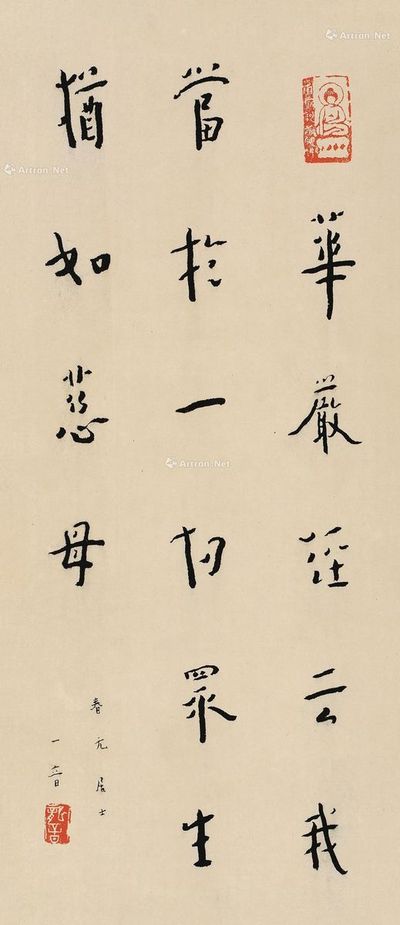 華嚴經云我
當於一切眾生
猶如慈母
春亢居士
一音
Artron.Net
Artron.Net
Artron.Net